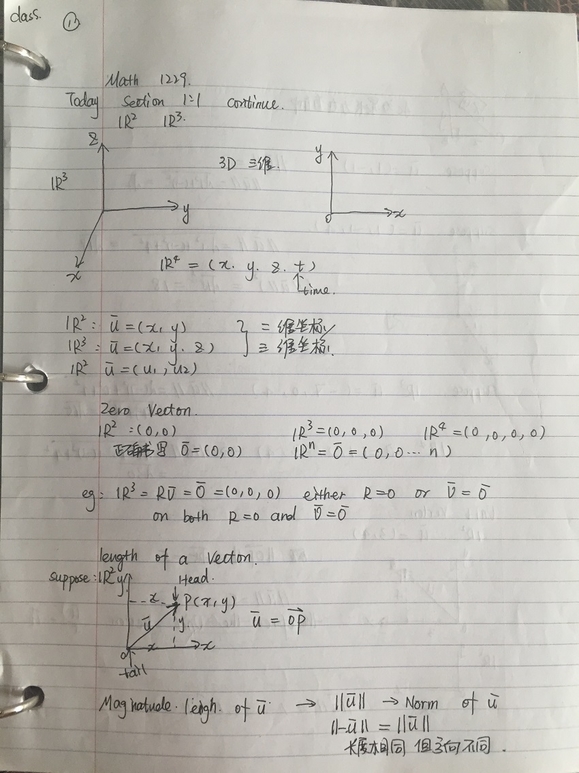 class. ⑪
Math 1229.
Today Section 1:1 continue.
IR² IR³.
z
IR³
y
x
3D 三维.
y
0
x
IR⁴ = (x. y. z. t)
time.
IR²: ū=(x, y) } 二维坐标
IR³: ū=(x, y. z) } 三维坐标.
IR² ū=(u₁, u₂)
Zero Vector.
IR²:(0,0) IR³=(0,0,0) IR⁴=(0,0,0,0)
正确书写 ō=(0,0) IRⁿ=ō=(0,0...n)
eg: IR³=Rv̄=ō=(0,0,0) either R=0 or v̄=ō
on both R=0 and v̄=ō
length of a Vector.
suppose: IR² y Head.
x P(x,y)
ū y ū = OP⃗
0 x x
tail
Magnatude. lengh. of ū → ||ū|| → Norm of ū
||-ū|| = ||ū||
长度相同 但方向不同.